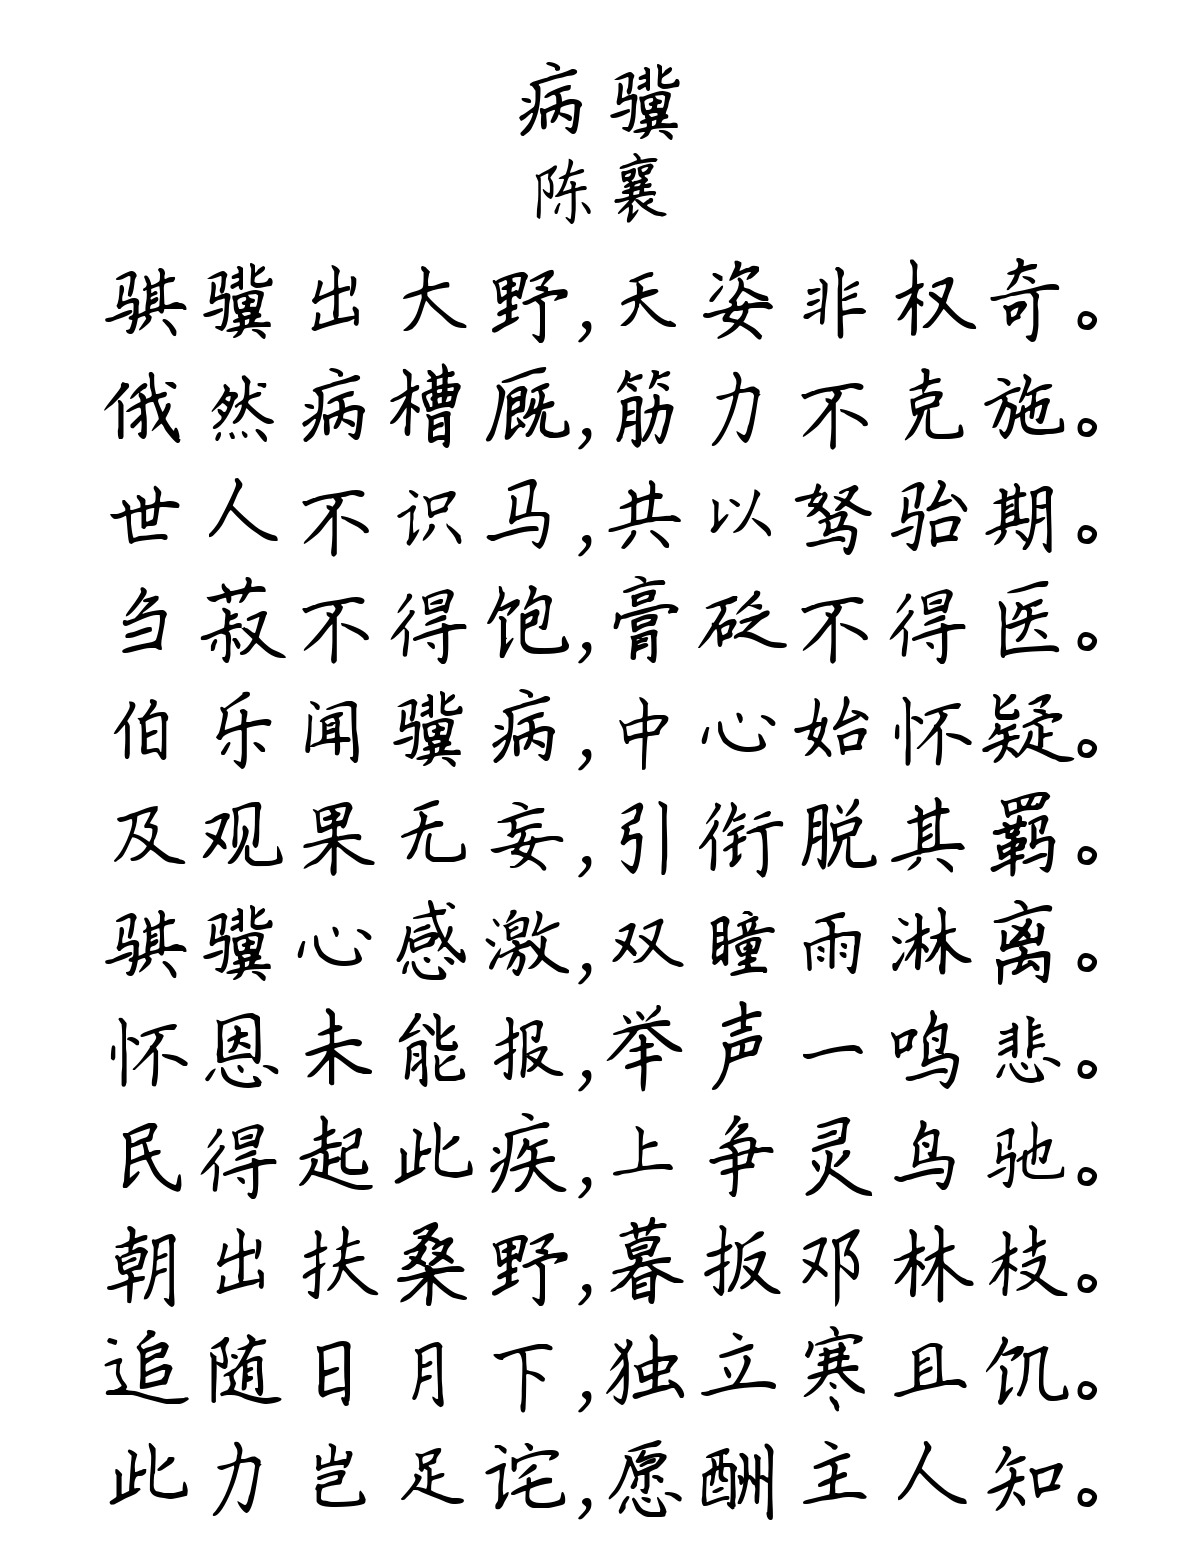 病骥
陈襄
骐骥出大野,天姿非权奇。
俄然病槽厩,筋力不克施。
世人不识马,共以驽骀期。
刍菽不得饱,膏砭不得医。
伯乐闻骥病,中心始怀疑。
及观果无妄,引衔脱其羁。
骐骥心感激,双瞳雨淋离。
怀恩未能报,举声一鸣悲。
民得起此疾,上争灵鸟驰。
朝出扶桑野,暮扳邓林枝。
追随日月下,独立寒且饥。
此力岂足诧,愿酬主人知。